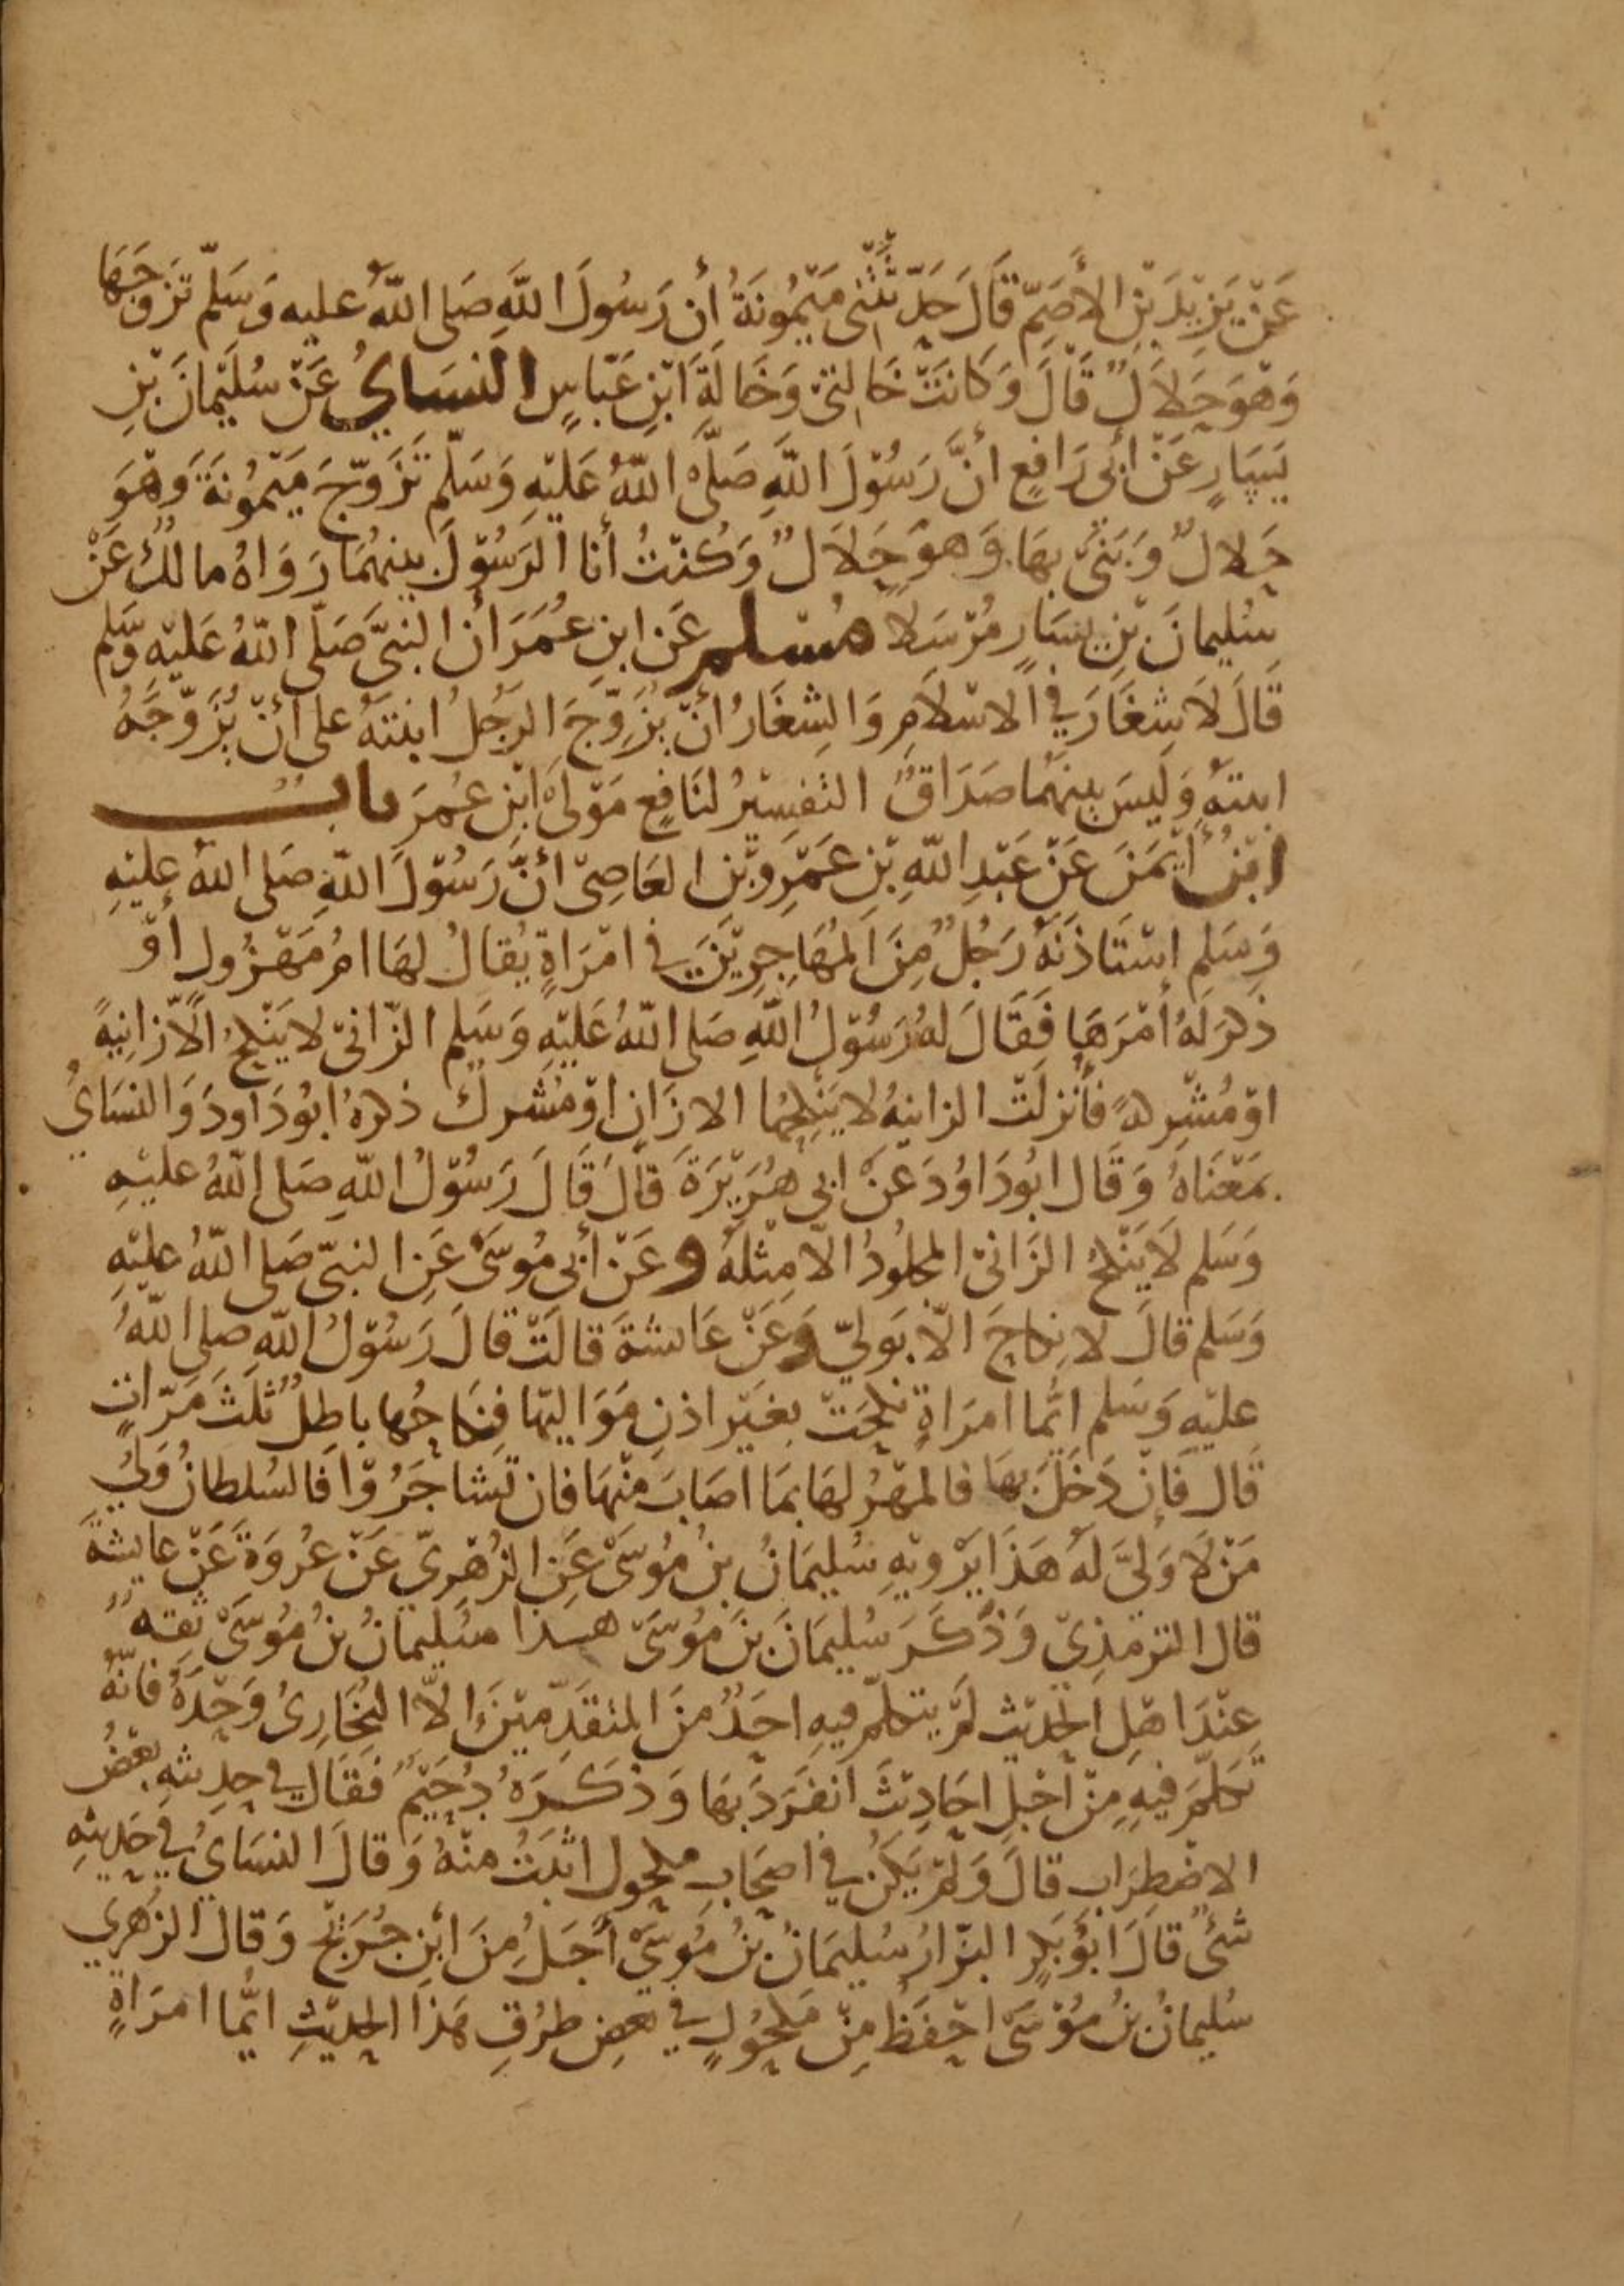 عَنْ يَزِيْدَ بْنِ الأَصَمِّ قَالَ حَدَّثَتْنِى مَيْمُونَةُ أن رَسُولَ اللَّهِ صَلى اللَّهُ عليه وَسَلَّمَ تَزَوَّجَهَا
وَهْوَ حَلاَلٌ قَالَ وَكَانَتْ خَالَتِيْ وَخَالَةَ ابْنِ عَبّاسٍ النسَايُ عَنْ سُلَيْمانَ بْنِ
يَسَارٍ عَنْ أبي رَافِعٍ أنَّ رَسُوْلَ اللَّهِ صَلَّى اللَّهُ عَليْهِ وَسَلَّم تَزَوَّجَ مَيْمُونَةَ وَهْوَ
حَلالٌ وَبَنَىٰ بهَا وَهوَ حَلاَلٌ وَكُنْتُ أنا الرَسُوْلَ بينهُمَا رَوَاهُ مالكٌ عَنْ
سُليمانَ بْنِ يسَارٍ مُرْسَلا مُسْلم عَن ابنِ عُمَرَ أن النبيَّ صَلَّى اللَّهُ عَليْهِ وسَّلم
قَالَ لاَ شِغَارَ في الاسْلاَمِ وَالشِغَارُ أنْ يُزَوِّجَ الرَجُلُ ابنتهُ على أنْ يُزَوِّجَهُ
ابنتهُ وَلَيسَ بينهُما صَدَاقٌ التفسِيْرُ لنَافِعٍ مَوْلىَ ابْنِ عُمَرَ باب
ابْنُ أيْمَنَ عَنْ عَبْدِ اللَّهِ بْنِ عَمْرِو بْن العَاصِيْ أنَّ رَسُوْلَ اللَّهِ صَلى اللهُ عليْهِ
وَسَلم اسْتَاذَنَهُ رَجُلٌ مِنَ المُهَاجِرِيْنَ في امْرَاةٍ يُقالُ لهَا امُ مَهْزُولٍ أوْ
ذكرَ لهُ أمْرَهَا فَقَالَ لهُ رَسُوْلُ اللَّهِ صَلى اللَّهُ عَليْهِ وَسَلم الزّانيْ لا يَنْكِحُ الاَّ زانِيةً
اوْ مُشْرِكةً فأنزلَتْ الزانيهُ لا ينكِحُها الا زَانٍ اوْ مُشْركٌ ذكرهُ ابُو دَاودَ وَالنسَايُ
بمَعْنَاهُ وَقَال ابُو دَاوُدَ عَنْ ابي هُرَيْرَةَ قالَ قَالَ رَسُوْلُ اللَّهِ صَلى اللَّهُ عليْهِ
وَسَلم لاَ يَنْكِحُ الزَانيْ المجلُودُ الاّ مِثْلَهُ وعَنْ أبي مُوسَىْ عَنِ النبيّ صَلى اللَّهُ عليْهِ
وَسَلم قالَ لا نِكاحَ الاّ بوَليّ وَعَنْ عَائشةَ قالَتْ قالَ رَسُوْلُ اللَّهِ صلى اللَّهُ
عليْهِ وَسَلم ايُّما امرَاةٍ نُكِحَتْ بغيْر اذنِ مَوَاليهَا فنِكاحُها باطِلٌ ثلَثَ مَرّاتٍ
قَال فَإنْ دَخَلَ بهَا فالمهْرُ لهَا بمَا اصَابَ منْهَا فان تَشاجَرُوْا فالسُلطانُ وَليُ
مَنْ لا وَليَّ لهُ هَذَا يَرْويهِ سُليمَانُ بنُ مُوسَىْ عَنِ الزُهْرِيّ عَنْ عُروَةَ عَنْ عايشةَ
قال الترمذِيّ وَذكَرَ سُليمَانَ بنَ مُوسَىْ هـذا سُليمانُ بنُ مُوسَىْ ثقهٌ
عِنْدَ اهْلِ الحَديْث لمْ يتكلمْ فيهِ احَدٌ منَ المُتقَدِّمِيْنَ إلاّ البُخَارِيُ وَحْدَهُ فانَّهُ
تَكلّمَ فيهِ مِنْ اجْلِ احَادِيْثَ انفَرَدَ بهَا وَذكَرَهُ دُحَيْمٌ فَقَال في حدِيثهِ بعْضُ
الاضْطِرَابِ قالَ وَلمْ يَكنْ في اصحَابِ مكحول اثْبَتُ منهُ وَقالَ النسَايُ في حَديثهِ
شئٌ قالَ ابُو بَكرٍ البزّارُ سُليمَانُ بنُ مُوسَىْ أجَلُ مِنَ ابْنِ جُرَيْجٍ وَقالَ الزُهريّ
سُليمانُ بنُ مُوْسَى احْفَظُ مِنْ مَكحُولٍ في بعض طرُقِ هَذا الحَديْثِ ايُّما امرَاةٍ